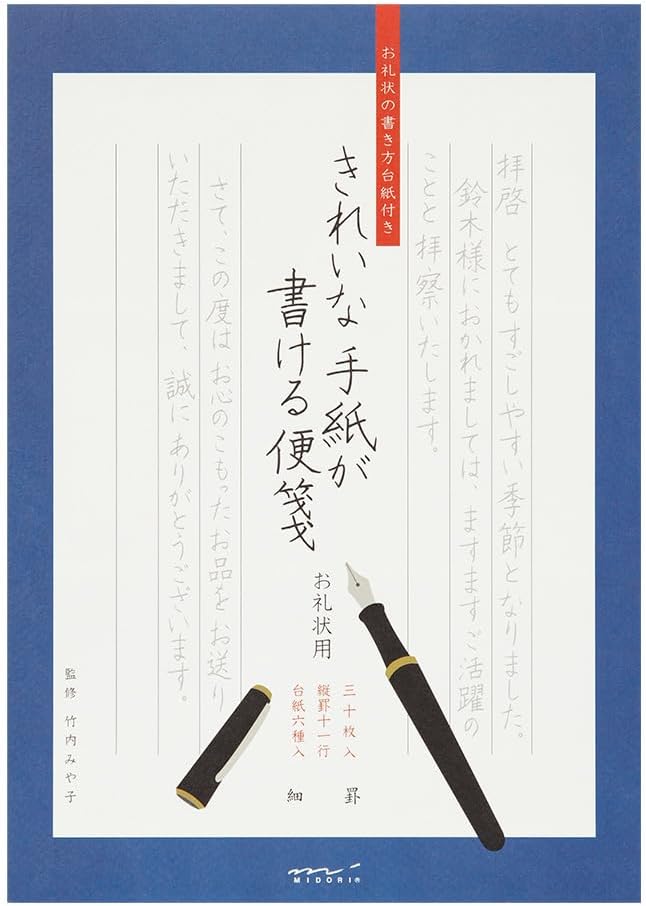 お礼状の書き方台紙付き
拝啓 とてもすごしやすい季節となりました。
鈴木様におかれましては、ますますご活躍の
ことと拝察いたします。
きれいな手紙が
書ける便箋
さて、この度はお心のこもったお品をお送り
いただきまして、誠にありがとうございます。
お礼状用
三十枚入
縦罫十一行
台紙六種入
細罫
監修 竹内みや子
MIDORI®